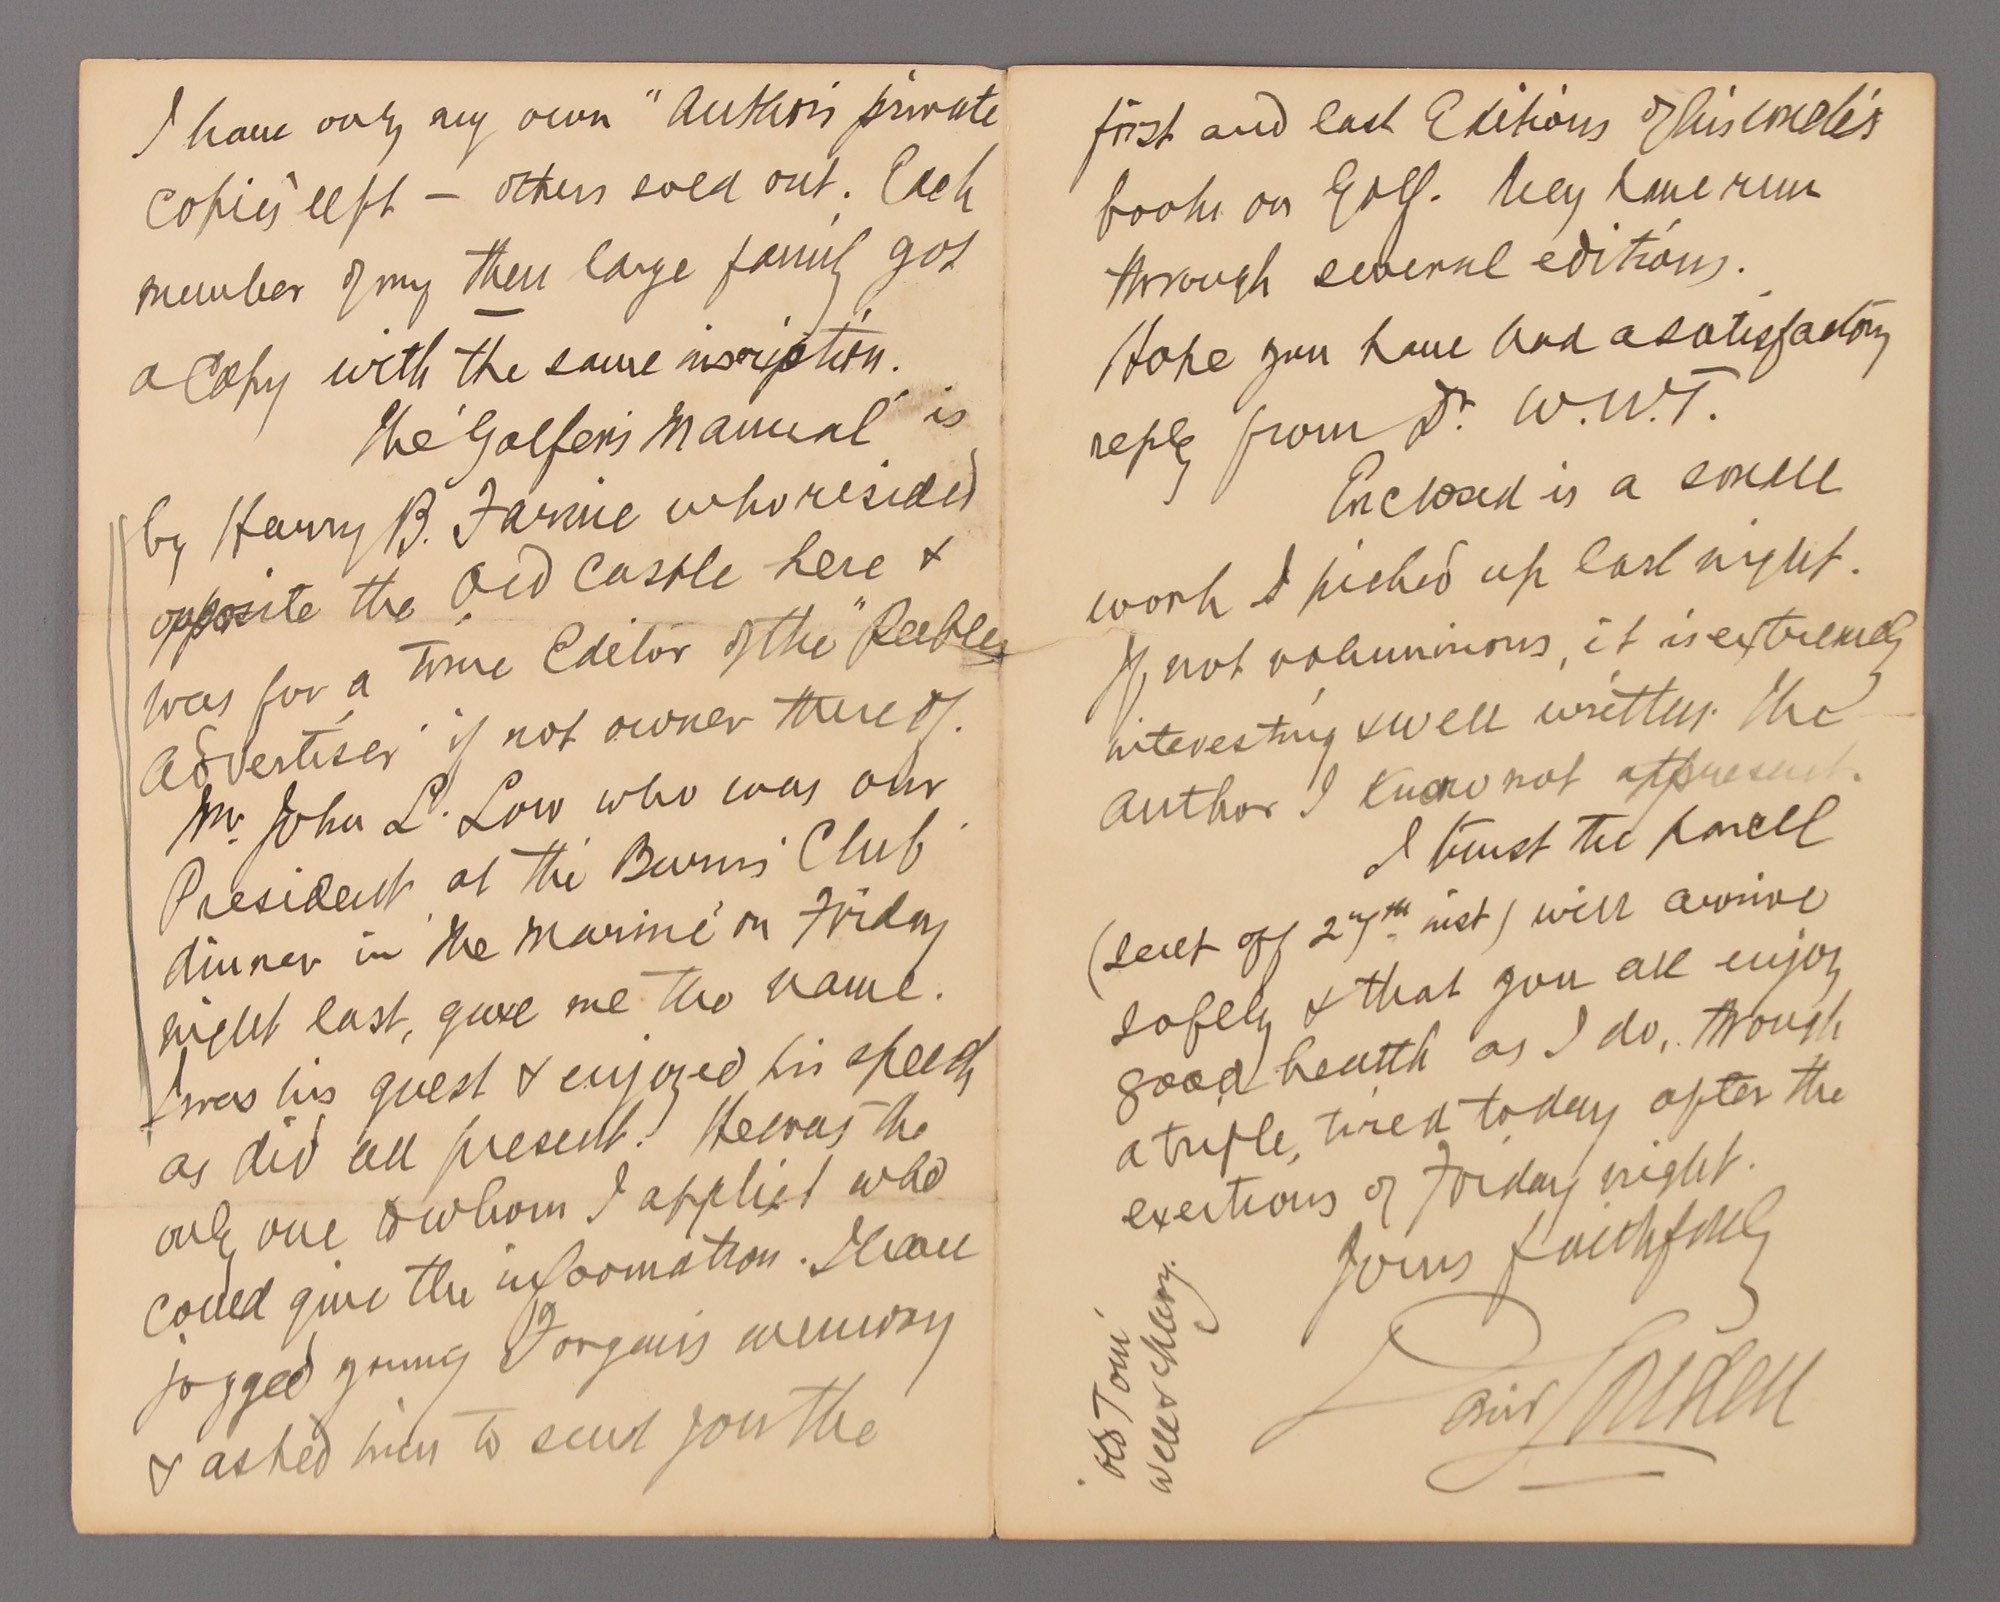 I have only my own "Author's private
copies" left — others sold out. Each
member of my then large family got
a copy with the same inscription.
The 'Golfer's Manual' is
by Harry B. Farnie who resided
opposite the Old Castle here &
was for a time Editor of the "Peebles
Advertiser" if not owner thereof.
Mr. John L. Low who was our
President at the Burns' Club
dinner in 'the Marine' on Friday
night last, gave me the name.
I was his guest & enjoyed his speech
as did all present. He was the
only one to whom I applied who
could give the information. I have
jogged young Forgan's memory
& asked him to send you the
first and last Editions of his uncle's
books on Golf. They have run
through several editions.
Hope you have had a satisfactory
reply from Dr. W.W.T.
Enclosed is a small
work I picked up last night.
If, not voluminous, it is extremely
interesting & well written. The
author I know not at present.
I trust the parcell
(sent off 27th inst) will arrive
safely & that you all enjoy
good health as I do, though
a trifle, tired today after the
exertions of Friday night.
Yours faithfully
David Louden
'Old Tom'
well & cheery.